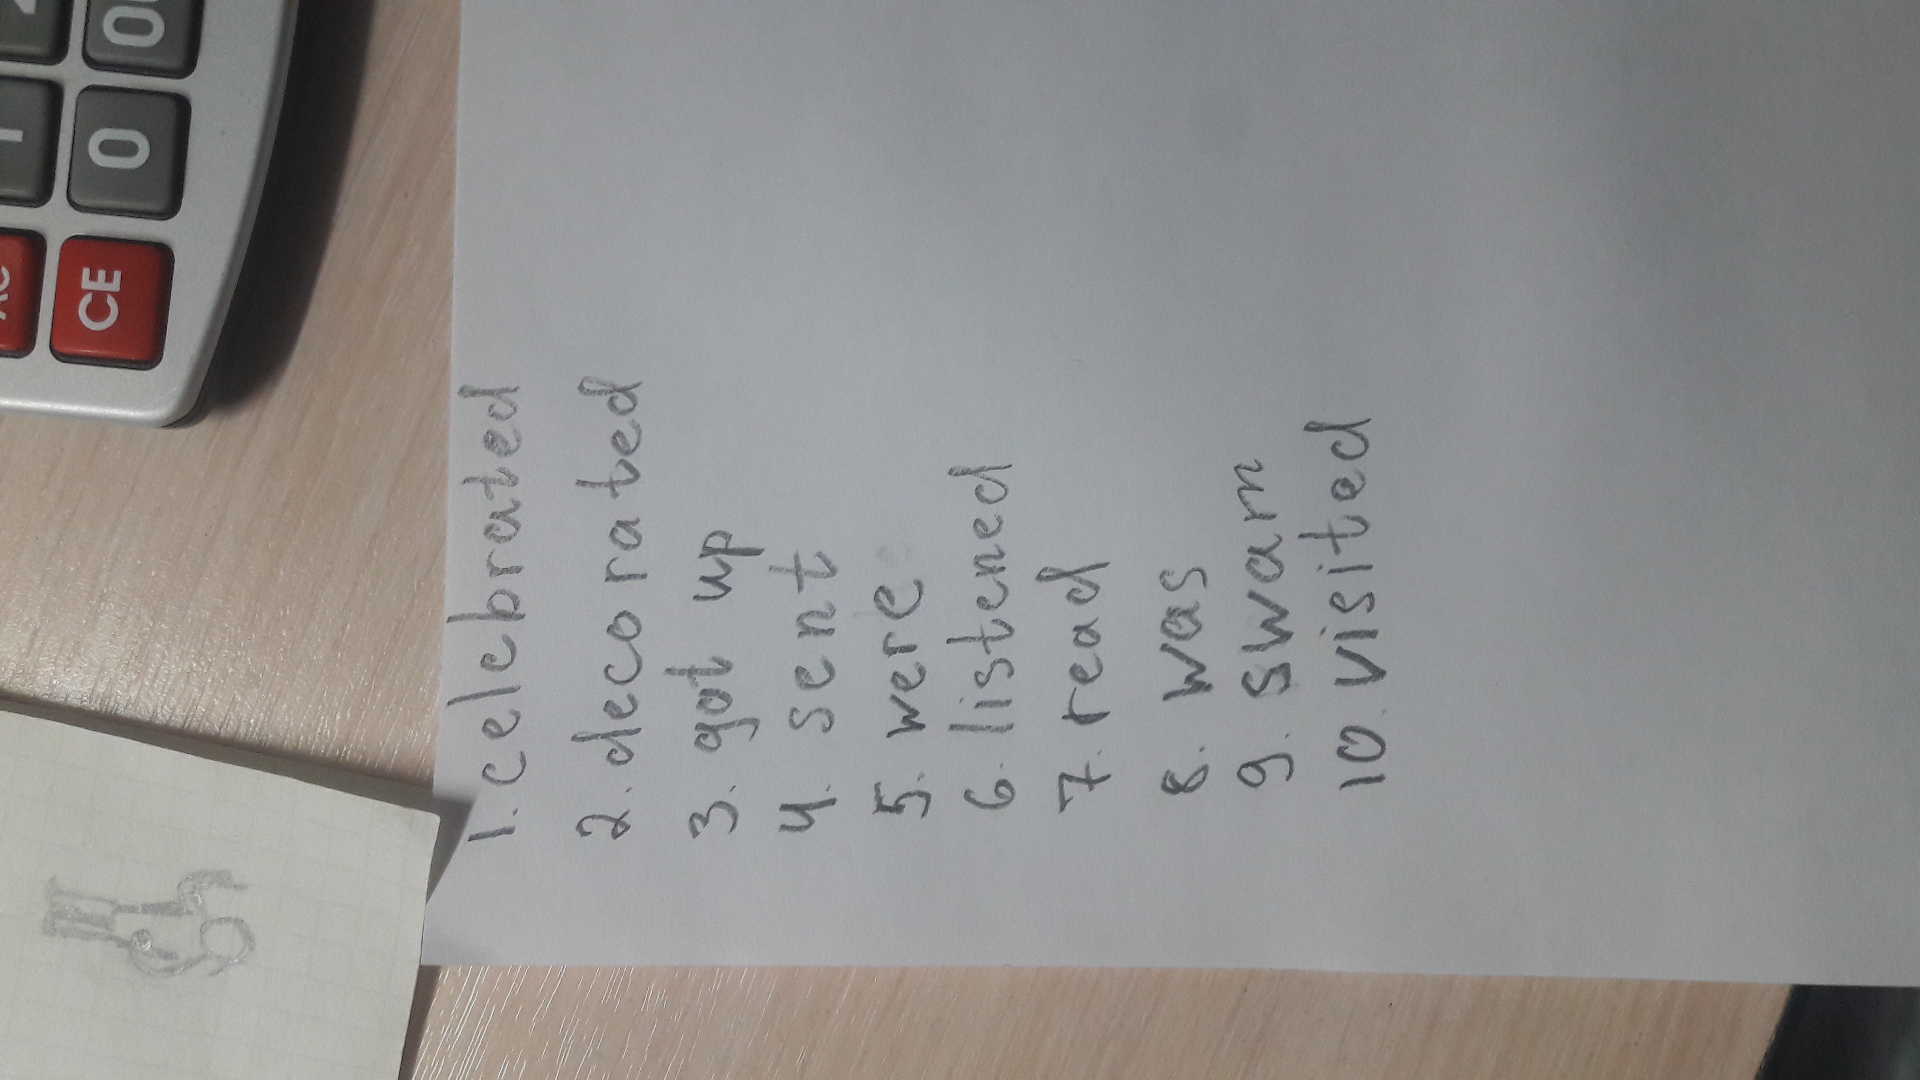 1. celebrated
2. decorated
3. got up
4. sent
5. were
6. listened
7. read
8. was
9. swam
10. visited
0
CE